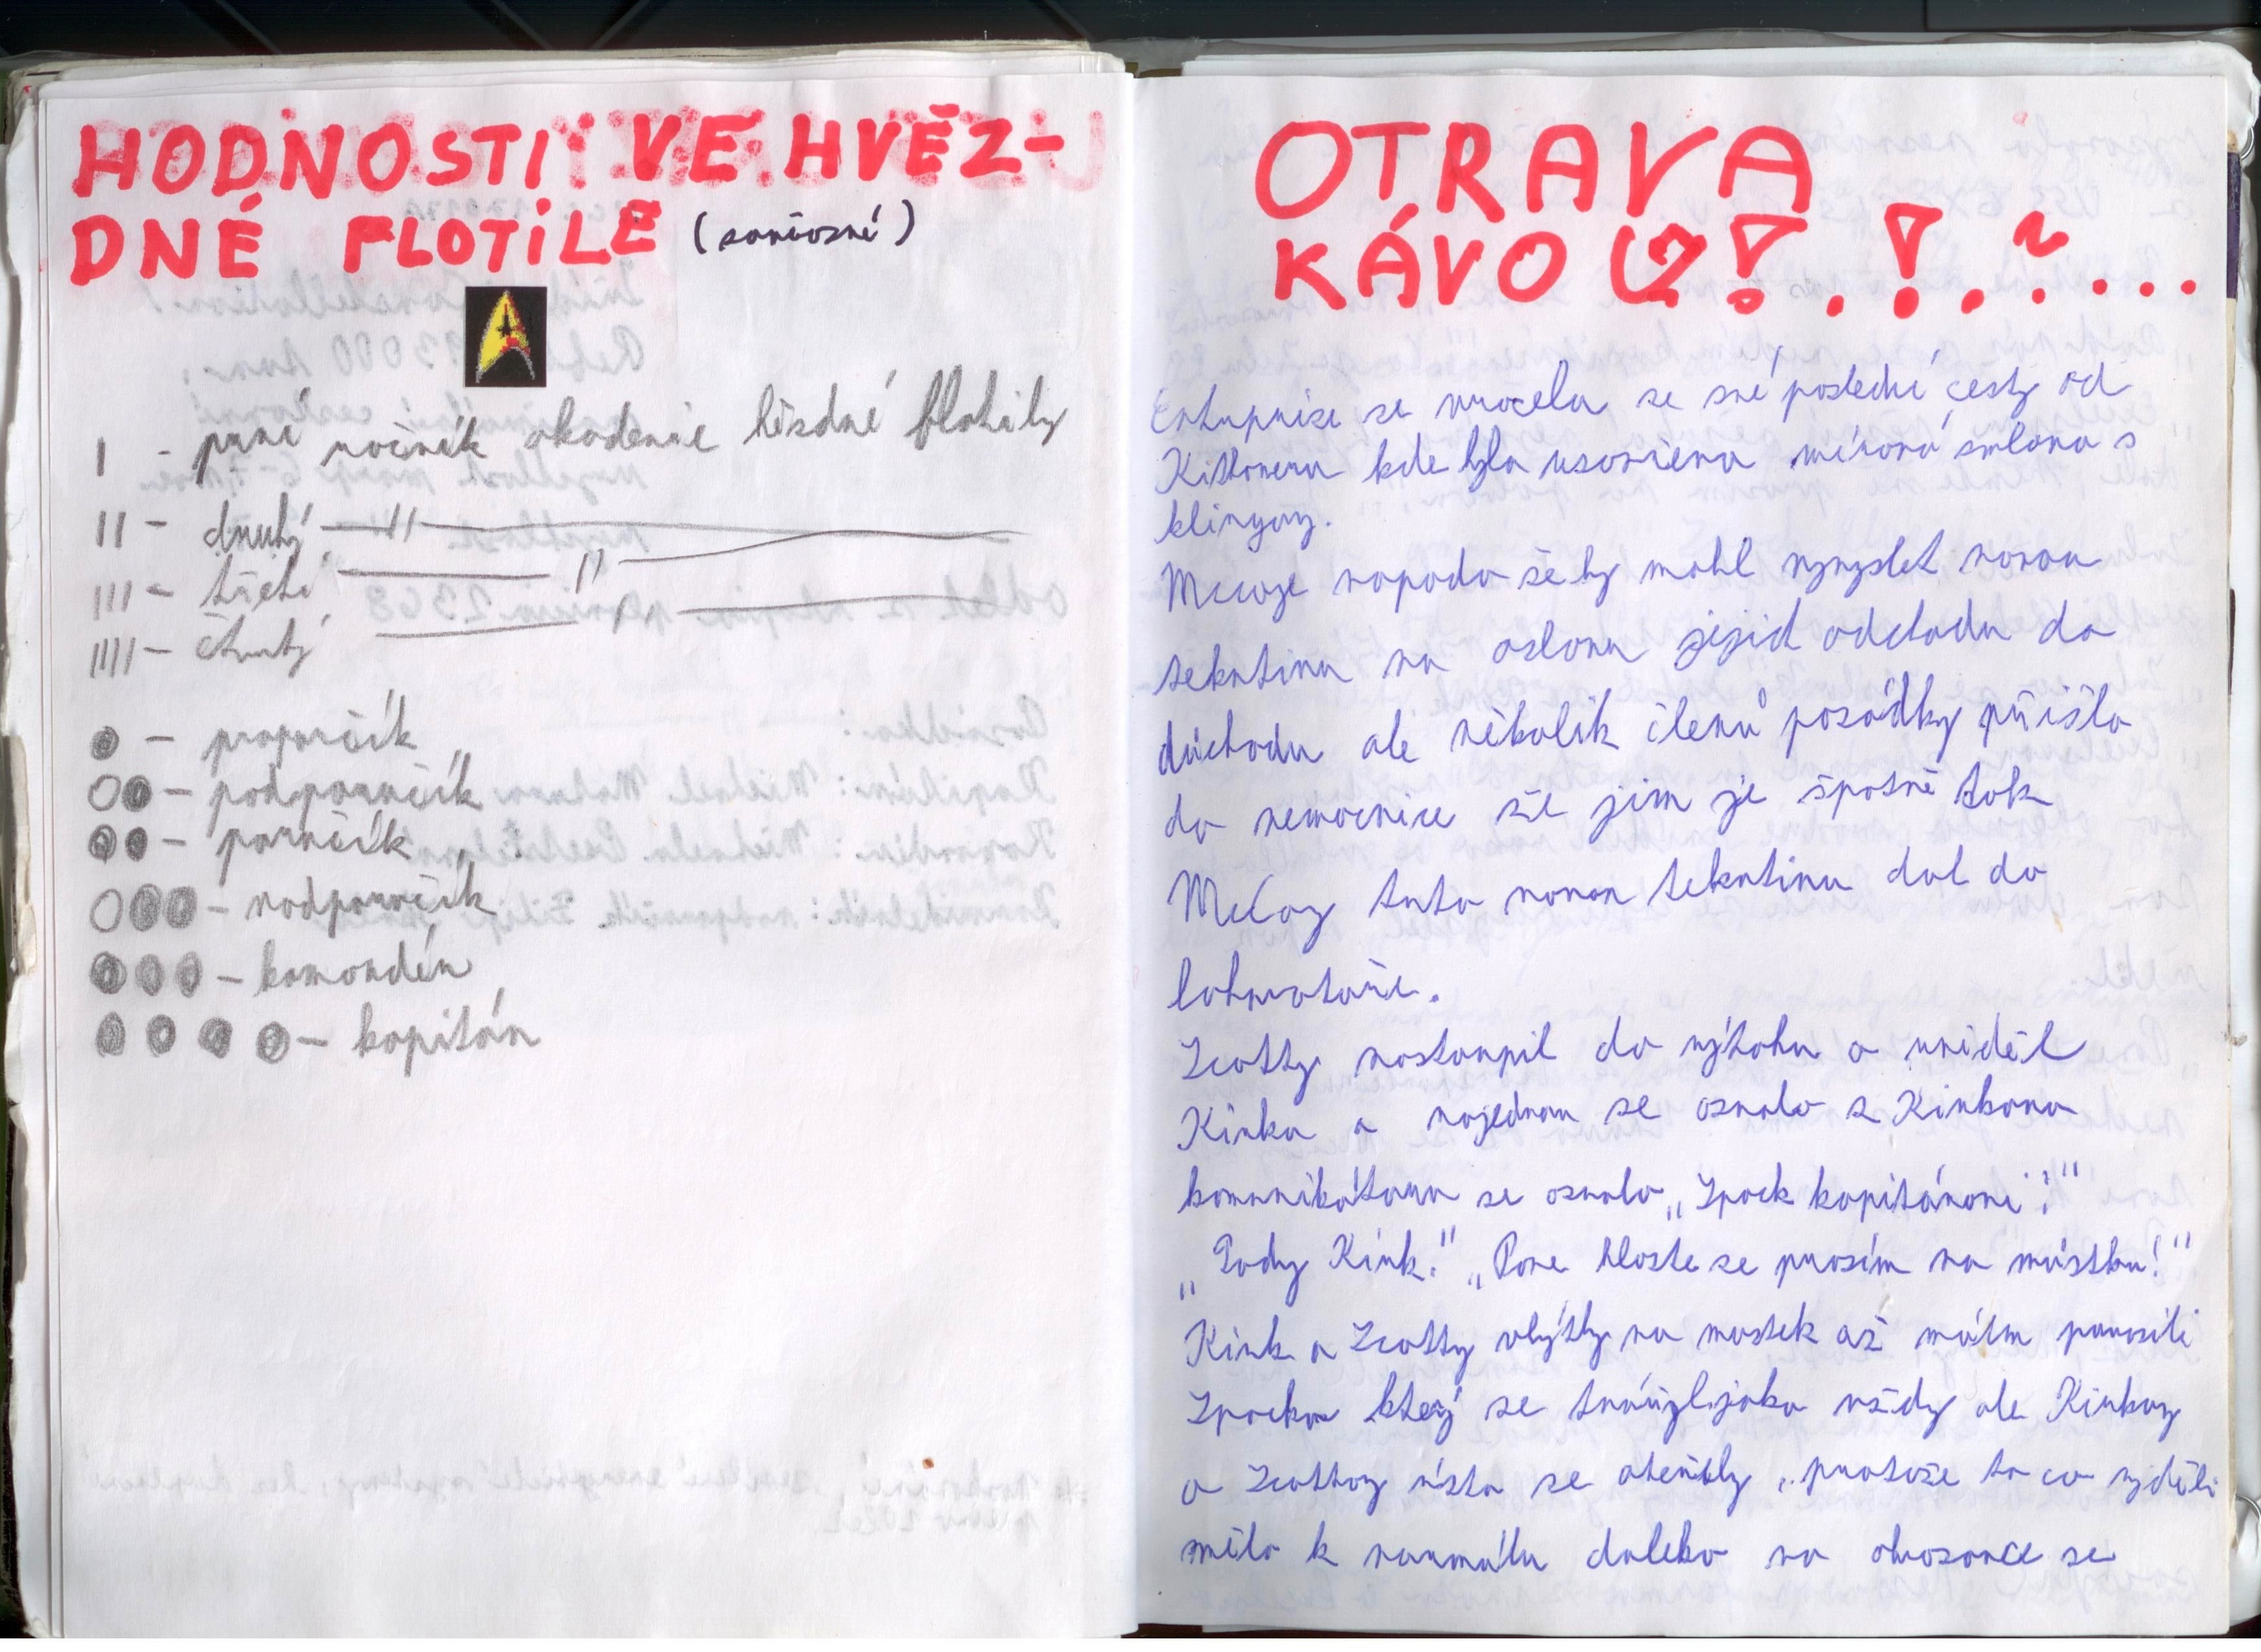 HODNOSTI VE HVĚZ-
DNÉ FLOTILE (současné)
I - první ročník akademie hvězdné flotily
II - druhý —— 11 ——
III - třetí —— 11 ——
IIII - čtvrtý —— 11 ——
- praporčík
- podporučík
- poručík
- nadporučík
- komandér
- kapitán
OTRAVA
KÁVOU?!.!.~...
Enterprise se vracela se své poslední cesty od
Kithomeru kde byla uzavřena mírová smlova s
klingony.
Mccoye napado že by mohl vymyslet novou
tekutinu na oslavu jejich odchodu do
důchodu ale několik členů posádky přišlo
do nemocnice že jim je špatně tak
McCoy tuto novou tekutinu dal do
lohmatoře.
Scotty nastoupil do výtahu a uviděl
Kirka a najednou se ozvalo z Kirkova
komunikátoru se ozvalo „Spock kapitánovi!"
„Tady Kirk." „Pane hlaste se prosím na můstku!"
Kirk a Scotty vlýtly na mostek až málm porazili
Spocka který se tvářyl jako vždy ale Kirkovy
a Scottovy ústa se otevřely, protože to co vyděli
mělo k normálu daleko na obrazovce se